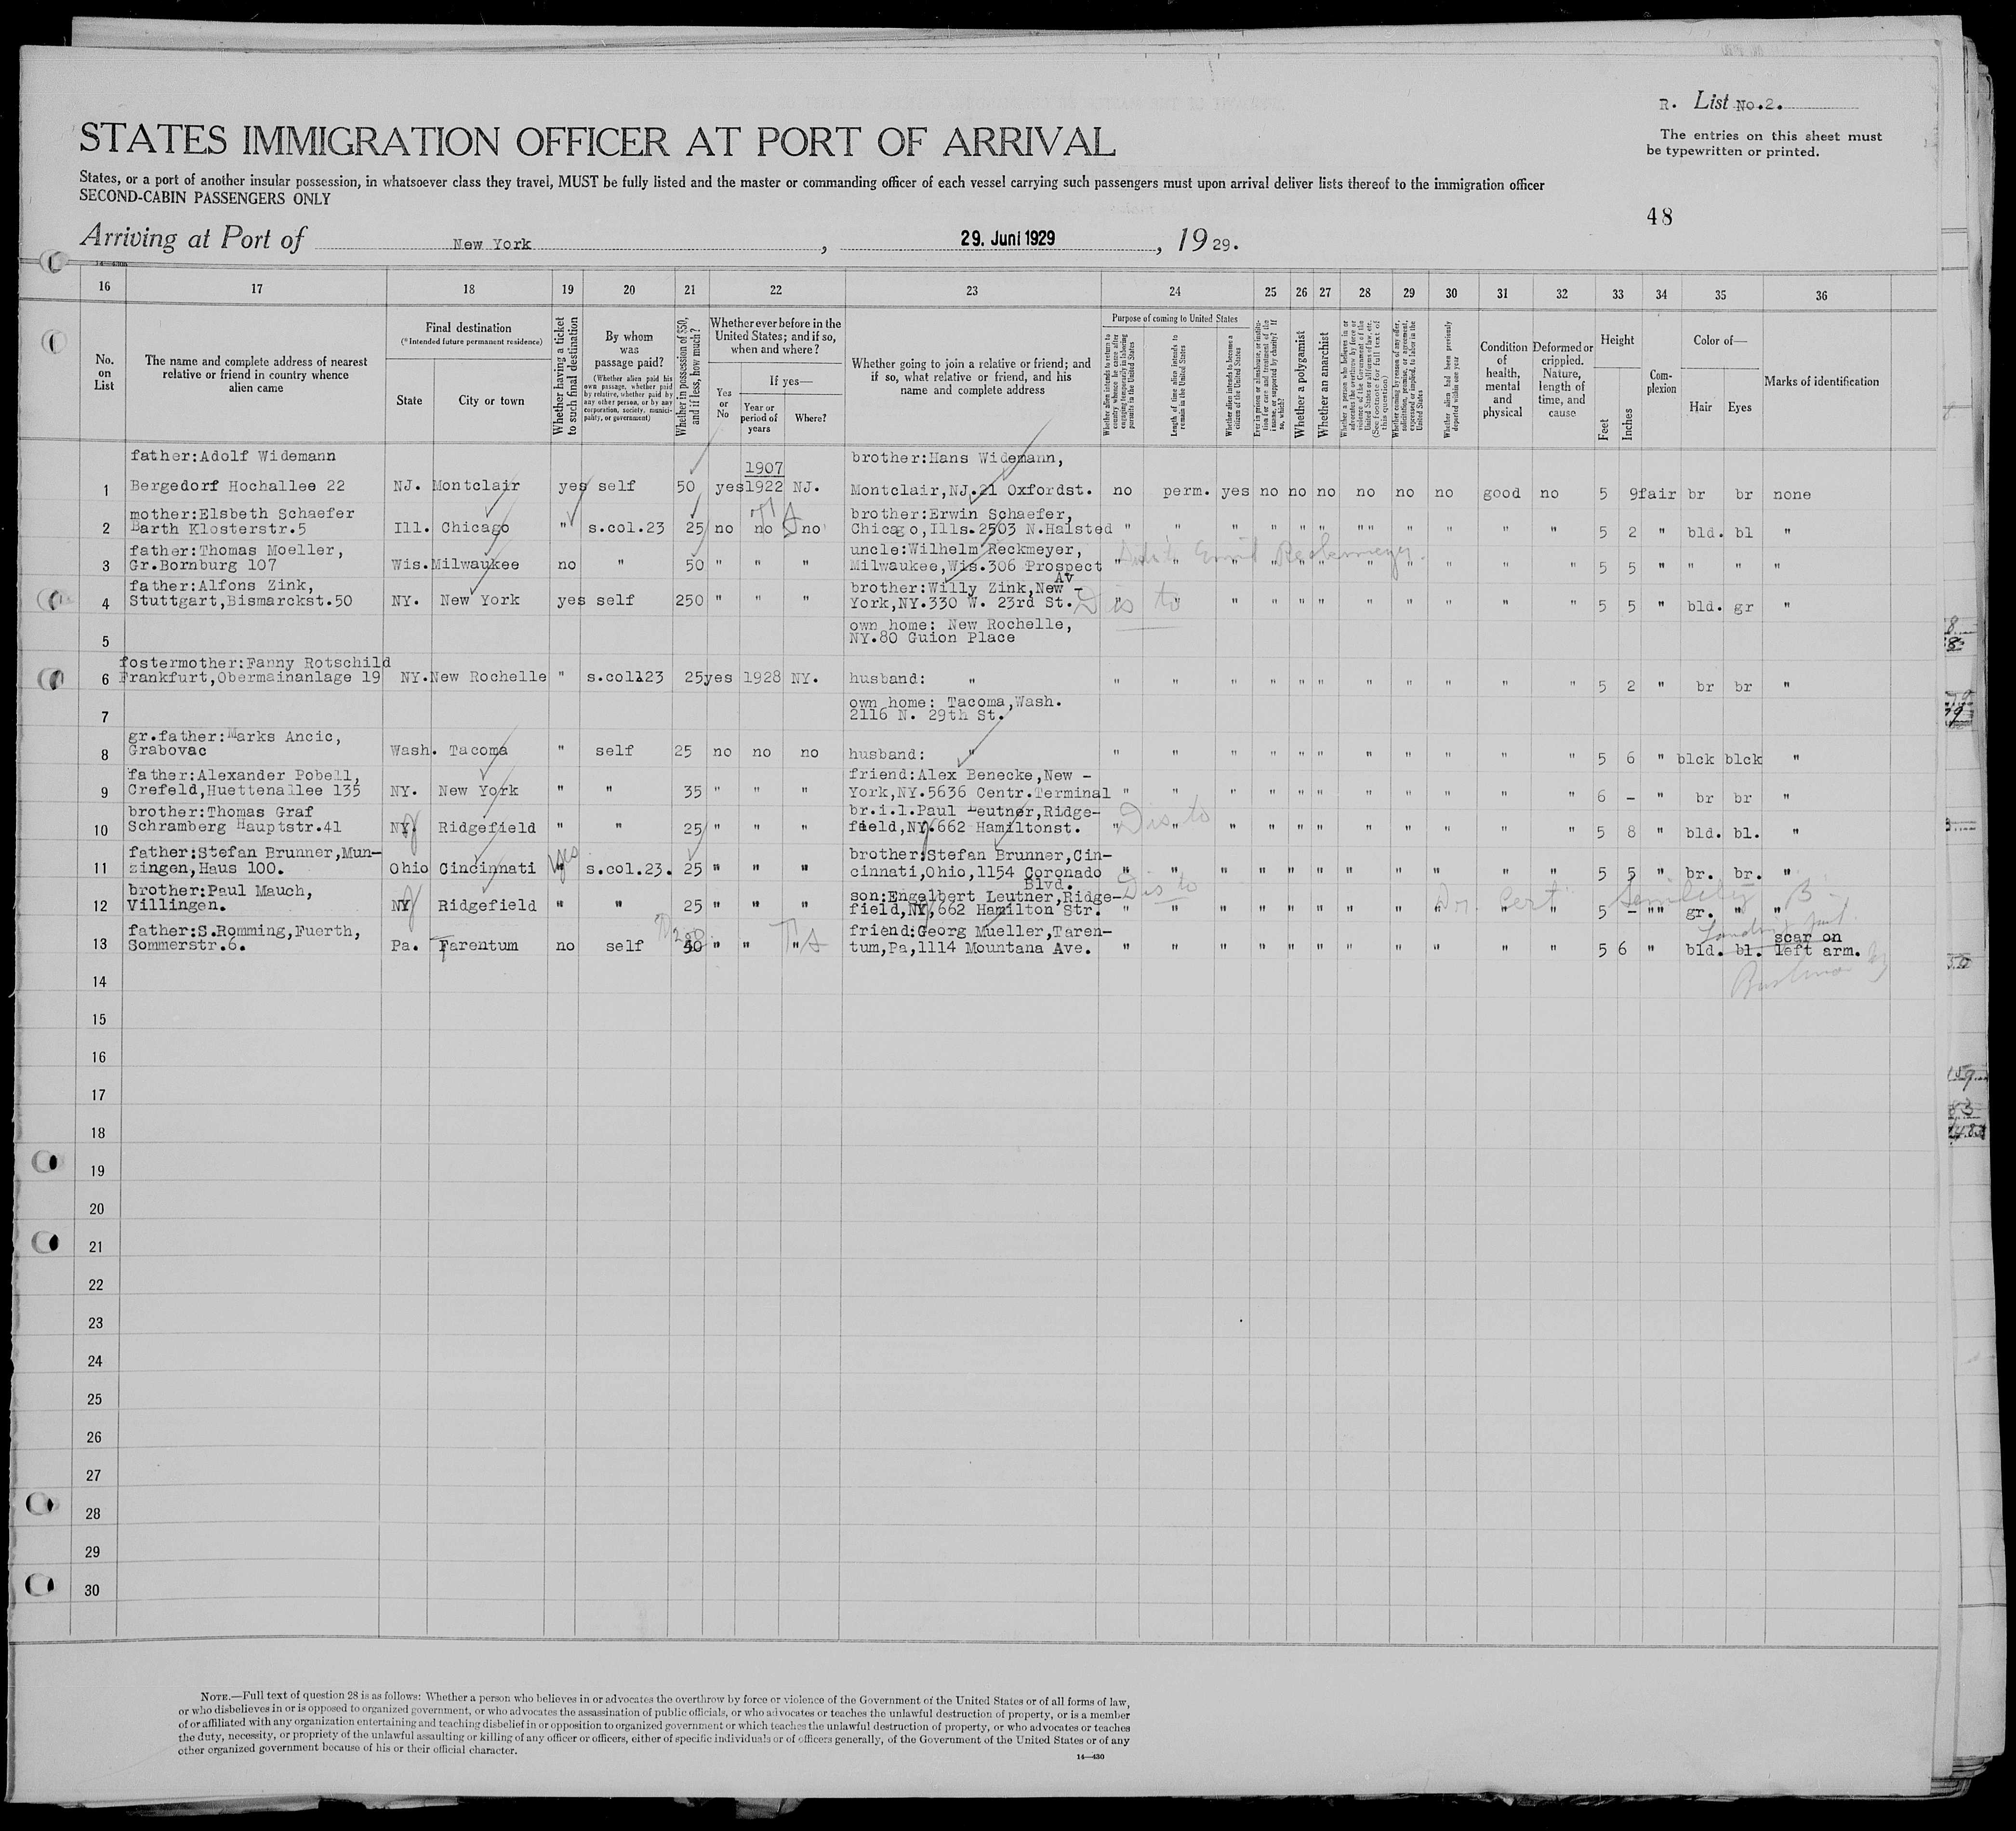 R. List No.2.
STATES IMMIGRATION OFFICER AT PORT OF ARRIVAL
The entries on this sheet must
be typewritten or printed.
States, or a port of another insular possession, in whatsoever class they travel, MUST be fully listed and the master or commanding officer of each vessel carrying such passengers must upon arrival deliver lists thereof to the immigration officer
SECOND-CABIN PASSENGERS ONLY
48
Arriving at Port of New York, 29. Juni 1929, 1929.
16 17 18 19 20 21 22 23 24 25 26 27 28 29 30 31 32 33 34 35 36
No. on List
The name and complete address of nearest relative or friend in country whence alien came
Final destination
(*Intended future permanent residence)
State
City or town
Whether having a ticket to such final destination
By whom was passage paid?
(Whether alien paid his own passage, whether paid by relative, whether paid by any other person, or by any corporation, society, municipality, or government)
Whether in possession of $50, and if less, how much?
Whether ever before in the United States; and if so, when and where?
Yes or No
If yes—
Year or period of years
Where?
Whether going to join a relative or friend; and if so, what relative or friend, and his name and complete address
Purpose of coming to United States
Whether alien intends to return to country whence he came after engaging temporarily in laboring pursuits in the United States
Length of time alien intends to remain in the United States
Whether alien intends to become a citizen of the United States
Ever in prison or almshouse, or institution for care and treatment of the insane, or supported by charity? If so, which?
Whether a polygamist
Whether an anarchist
Whether a person who believes in or advocates the overthrow by force or violence of the Government of the United States or all forms of law, etc. (See footnote for full text of this question)
Whether coming by reason of any offer, solicitation, promise, or agreement, expressed or implied, to labor in the United States
Whether alien had been previously deported within one year
Condition of health, mental and physical
Deformed or crippled. Nature, length of time, and cause
Height
Feet
Inches
Complexion
Color of—
Hair
Eyes
Marks of identification
father:Adolf Widemann 1907 brother:Hans Widemann,
1 Bergedorf Hochallee 22 NJ. Montclair yes self 50 yes 1922 NJ. Montclair,NJ.21 Oxfordst. no perm. yes no no no no no no good no 5 9 fair br br none
mother:Elsbeth Schaefer brother:Erwin Schaefer,
2 Barth Klosterstr.5 Ill. Chicago " s.col.23 25 no no no Chicago,Ills.2503 N.Halsted " " " " " " " " " " " " 5 2 " bld. bl "
father:Thomas Moeller, uncle:Wilhelm Reckmeyer,
3 Gr.Bornburg 107 Wis. Milwaukee no " 50 " " " Milwaukee,Wis.306 Prospect Av " " " " " " " " " " " 5 5 " " " "
Emil Reckmeyer.
father:Alfons Zink, brother:Willy Zink,New -
4 Stuttgart,Bismarckst.50 NY. New York yes self 250 " " " York,NY.330 W. 23rd St. " " " " " " " " " " " 5 5 " bld. gr "
Dis to
own home: New Rochelle,
5 NY.80 Guion Place
fostermother:Fanny Rotschild
6 Frankfurt,Obermainanlage 19 NY. New Rochelle " s.col123 25 yes 1928 NY. husband: " " " " " " " " " " " " 5 2 " br br "
own home: Tacoma,Wash.
7 2116 N. 29th St.
gr.father:Marks Ancic,
8 Grabovac Wash. Tacoma " self 25 no no no husband: " " " " " " " " " " " " 5 6 " blck blck "
father:Alexander Pobell, friend:Alex Benecke,New -
9 Crefeld,Huettenallee 135 NY. New York " " 35 " " " York,NY.5636 Centr.Terminal " " " " " " " " " " " 6 – " br br "
brother:Thomas Graf br.i.l.Paul Leutner,Ridge-
10 Schramberg Hauptstr.41 NJ. Ridgefield " " 25 " " " field,NJ.662 Hamiltonst. " " " " " " " " " " " 5 8 " bld. bl. "
Dis to
father:Stefan Brunner,Mun- brother:Stefan Brunner,Cin-
11 zingen,Haus 100. Ohio Cincinnati yes s.col.23. 25 " " " cinnati,Ohio,1154 Coronado Blvd. " " " " " " " " " " " 5 5 " br. br. "
brother:Paul Mauch, son:Engelbert Leutner,Ridge-
12 Villingen. NJ Ridgefield " " 25 " " " field,NJ,662 Hamilton Str. " " " " " " " " " " " 5 – "" gr. " "
Dis to Dr. Cert Senility B
father:S.Romming,Fuerth, friend:Georg Mueller,Taren-
13 Sommerstr.6. Pa. Tarentum no self 50 " " " tum,Pa,1114 Mountana Ave. " " " " " " " " " " " 5 6 " bld. bl. scar on left arm.
14
15
16
17
18
19
20
21
22
23
24
25
26
27
28
29
30
NOTE.—Full text of question 28 is as follows: Whether a person who believes in or advocates the overthrow by force or violence of the Government of the United States or of all forms of law,
or who disbelieves in or is opposed to organized government, or who advocates the assassination of public officials, or who advocates or teaches the unlawful destruction of property, or is a member
of or affiliated with any organization entertaining and teaching disbelief in or opposition to organized government or which teaches the unlawful destruction of property, or who advocates or teaches
the duty, necessity, or propriety of the unlawful assaulting or killing of any officer or officers, either of specific individuals or of officers generally, of the Government of the United States or of any
other organized government because of his or their official character.
14—430